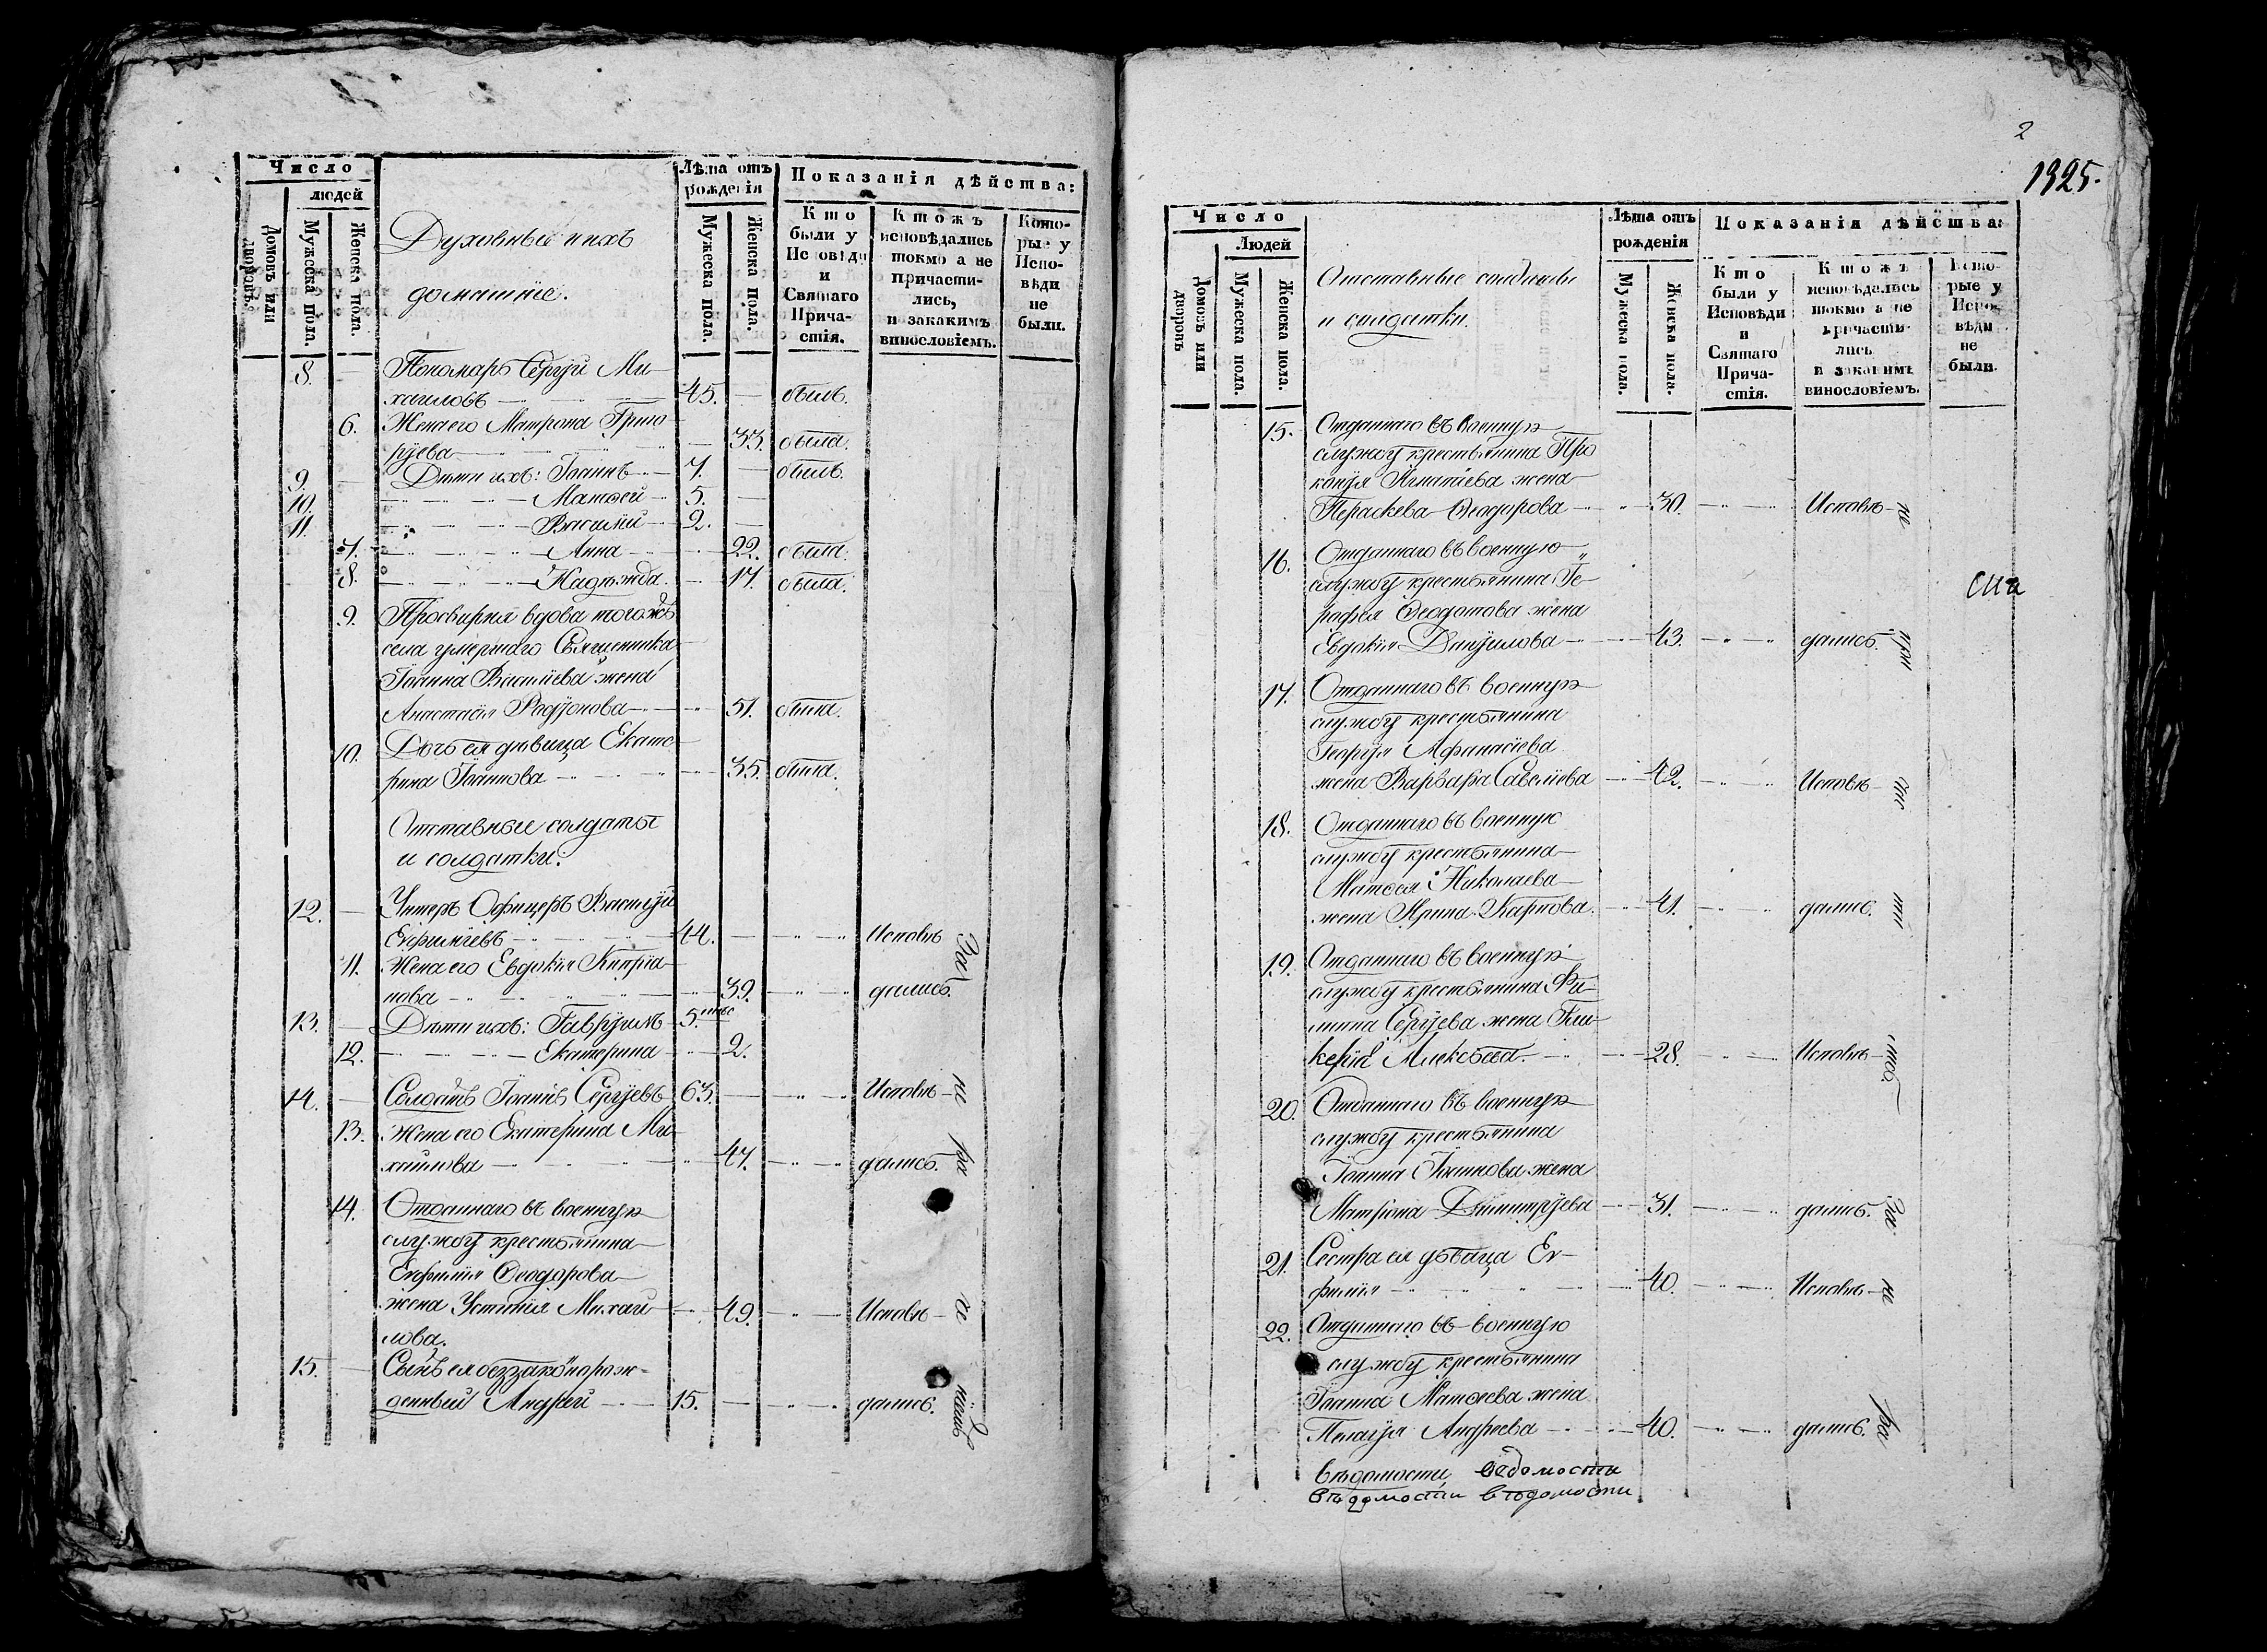 Число
людей
Домовъ или дворовъ.
Мужеска пола.
Женска пола.
Духовныя и ихъ
домашніе.
Лѣта отъ
рожденія
Мужеска пола.
Женска пола.
Показанія дѣйства:
Кто
были у
Исповѣди
и
Святаго
Прича-
стія.
Ктожъ
исповѣдались
токмо а не
причасти-
лись,
и закакимъ
винословіемъ.
Кото-
рые у
Испо-
вѣди
не
были.
8. — Пономарь Сергій Ми-
хаиловъ 45. — былъ.
6. Жена его Матрона Григо
ріева — 33. была.
9. — Дѣти ихъ: Іоаннъ 7. — былъ.
10. Матѳей 5. —
11. Василій 2. —
7. Анна 22. была.
8. Надежда 17. была.
9. Просвирня вдова тогожъ
села умершаго Священника
Іоанна Василіева жена
Анастасія Родіонова 51. была.
10. Дочь ея дѣвица Екате
рина Іоаннова 35. была.
Отставные солдаты
и солдатки.
12. — Унтеръ Офицеръ Василій
Евфиміевъ 44. — Исповѣ
11. Жена его Евдокія Кипріа-
нова 39. дались.
13. — Дѣти ихъ: Гавріилъ 5.
12. Екатерина 2.
14. — Солдатъ Іоаннъ Сергіевъ 63. Исповѣ-
13. Жена его Екатерина Ми-
хайлова 47. дались.
14. Отданнаго въ военную
службу крестьянина
Евфимія Ѳеодорова
жена Устинія Михаи 49. Исповѣ-
лова.
15. — Сынъ ея беззаконорож-
денный Андрей 15. — дались.
За
не
ра
с
2
1325.
Число
Людей
Домовъ или дворовъ
Мужеска пола.
Женска пола.
Отставные солдаты
и солдатки.
Лѣта отъ
рожденія
Мужеска пола.
Женска пола.
Показанія дѣйства:
Кто
были у
Исповѣди
и
Святаго
Прича-
стія.
Ктожъ
исповѣдались
токмо а не
причасти-
лись
и закакимъ
винословіемъ.
Кото-
рые у
Испо-
вѣди
не
были.
15. Отданнаго въ военную
службу крестьянина Про
копія Игнатіева жена
Параскева Ѳеодорова 30. Исповѣ-
16. Отданнаго въ военную
службу крестьянина
Ѳеодотова жена
Евдокія Даніилова 43. дались.
17. Отданнаго въ военную
службу крестьянина
Георгія Афанасіева
жена Варвара Савеліева 42. Исповѣ-
18. Отданнаго въ военную
службу крестьянина
Матѳея Николаева
жена Ирина Карпова. 41. дались.
19. Отданнаго въ военную
службу крестьянина Фи-
липа Сергіева жена Гли-
керія Алексѣева. 28. Исповѣ-
20. Отданнаго въ военную
службу крестьянина
Іоанна Іоаннова жена
Матрона Димитріева 31. дались.
21. Сестра ея дѣвица Ев-
фимія 40. Исповѣ-
22. Отданнаго въ военную
службу крестьянина
Іоанна Матѳеева жена
Пелагія Андреева 40. дались.
не
при
сти
За
не
ра
вѣдомости ведомосты
вѣдомости вѣдомости